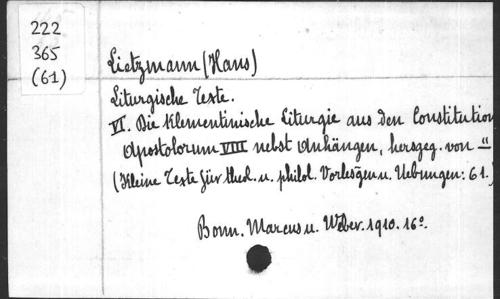 222
365
(61)
Lietzmann (Hans)
Liturgische Texte.
VI. Die Klementinische Liturgie aus den Constitution
Apostolorum VIII nebst Anhängen, hersgeg. von — "
(Kleine Texte für theol. u. philol. Vorlesgen u. Uebungen: 61.)
Bonn. Marcus u. Weber. 1910. 16°.